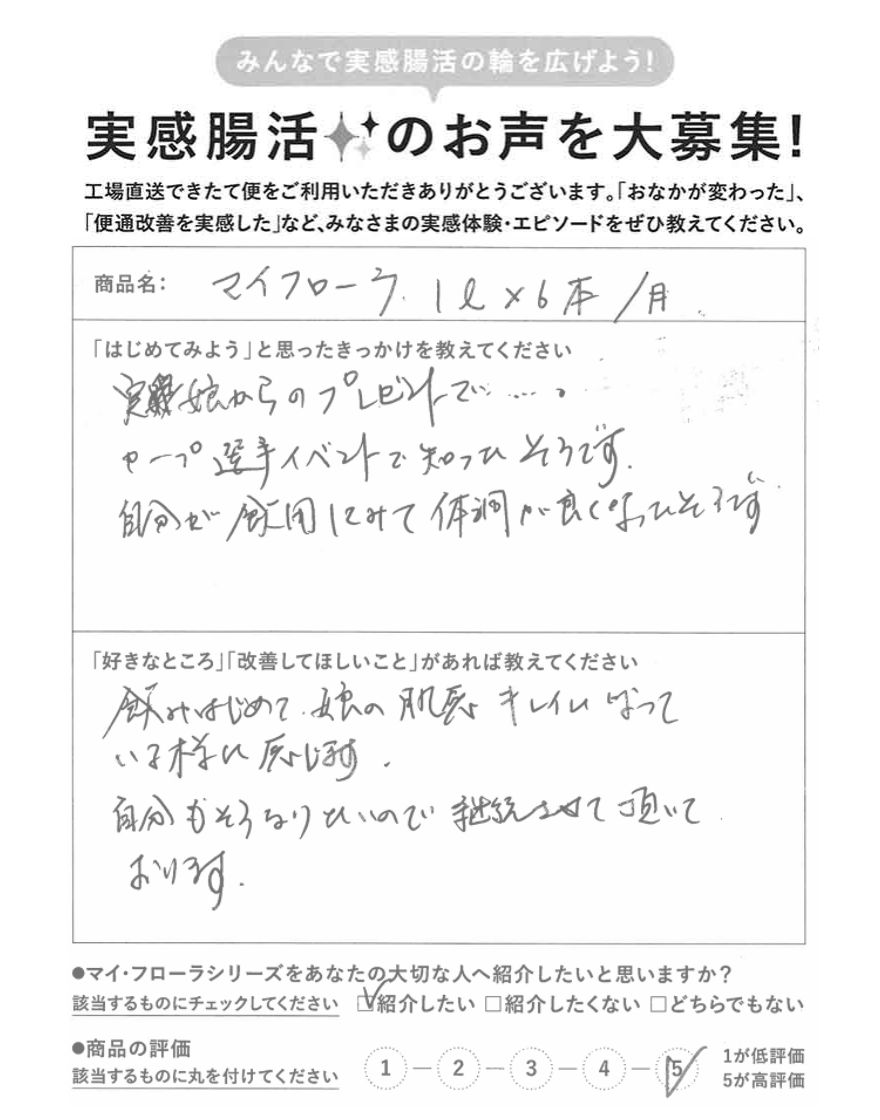 みんなで実感腸活の輪を広げよう!
実感腸活のお声を大募集!
工場直送できたて便をご利用いただきありがとうございます。「おなかが変わった」、
「便通改善を実感した」など、みなさまの実感体験・エピソードをぜひ教えてください。
商品名: マイフローラ. 1ℓ×6本/月
「はじめてみよう」と思ったきっかけを教えてください
娘からのプレゼントで…。
選手イベントで知ったそうです.
自分が飲用してみて体調が良くなったそうです
「好きなところ」「改善してほしいこと」があれば教えてください
飲みはじめて.娘の肌感キレイになって
いる様に感じます.
自分もそうなりたいので継続させて頂いて
おります.
●マイ・フローラシリーズをあなたの大切な人へ紹介したいと思いますか?
該当するものにチェックしてください ☑紹介したい □紹介したくない □どちらでもない
●商品の評価
該当するものに丸を付けてください 1 — 2 — 3 — 4 — 5 1が低評価
5が高評価